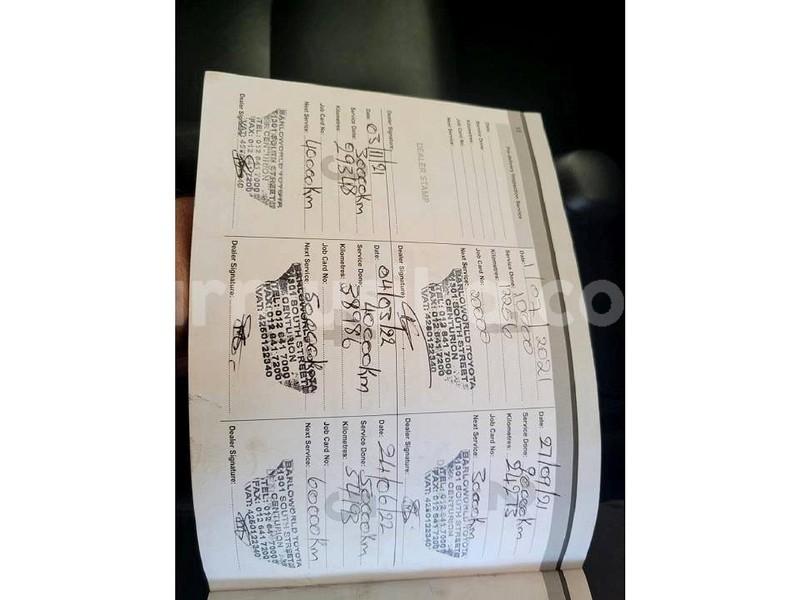 12
Pre-delivery Inspection Service
Date:
Service Done:
Kilometres:
Job Card No:
Next Service:
DEALER STAMP
Dealer Signature:
2021
Service Done: 10000
Job Card No:
Next Service: 20000
BARLOWORLD TOYOTA
1301 SOUTH STREET
CENTURION
TEL: 012 641 7000
FAX: 012 641 7200
VAT: 4280122340
Dealer Signature:
Date: 27/09/21
Service Done: 20000km
Kilometres: 24213
Job Card No:
Next Service: 30000km
BARLOWORLD TOYOTA
1301 SOUTH STREET
CENTURION
TEL: 012 641 7000
FAX: 012 641 7200
VAT: 4280122340
Dealer Signature:
Date: 03/11/21
Service Done: 30000km
Kilometres: 29318
Job Card No:
Next Service: 40000km
BARLOWORLD TOYOTA
1301 SOUTH STREET
CENTURION
TEL: 012 641 7000
FAX: 012 641 7200
Dealer Signature:
Date: 04/03/22
Service Done: 40000km
Kilometres: 38986
Job Card No:
Next Service: 50000km
BARLOWORLD TOYOTA
1301 SOUTH STREET
CENTURION
TEL: 012 641 7000
FAX: 012 641 7200
VAT: 4280122340
Dealer Signature:
Date: 24/06/22
Service Done: 50000km
Kilometres:
Job Card No:
Next Service: 60000km
BARLOWORLD TOYOTA
1301 SOUTH STREET
CENTURION
TEL: 012 641 7000
FAX: 012 641 7200
VAT: 4280122340
Dealer Signature: